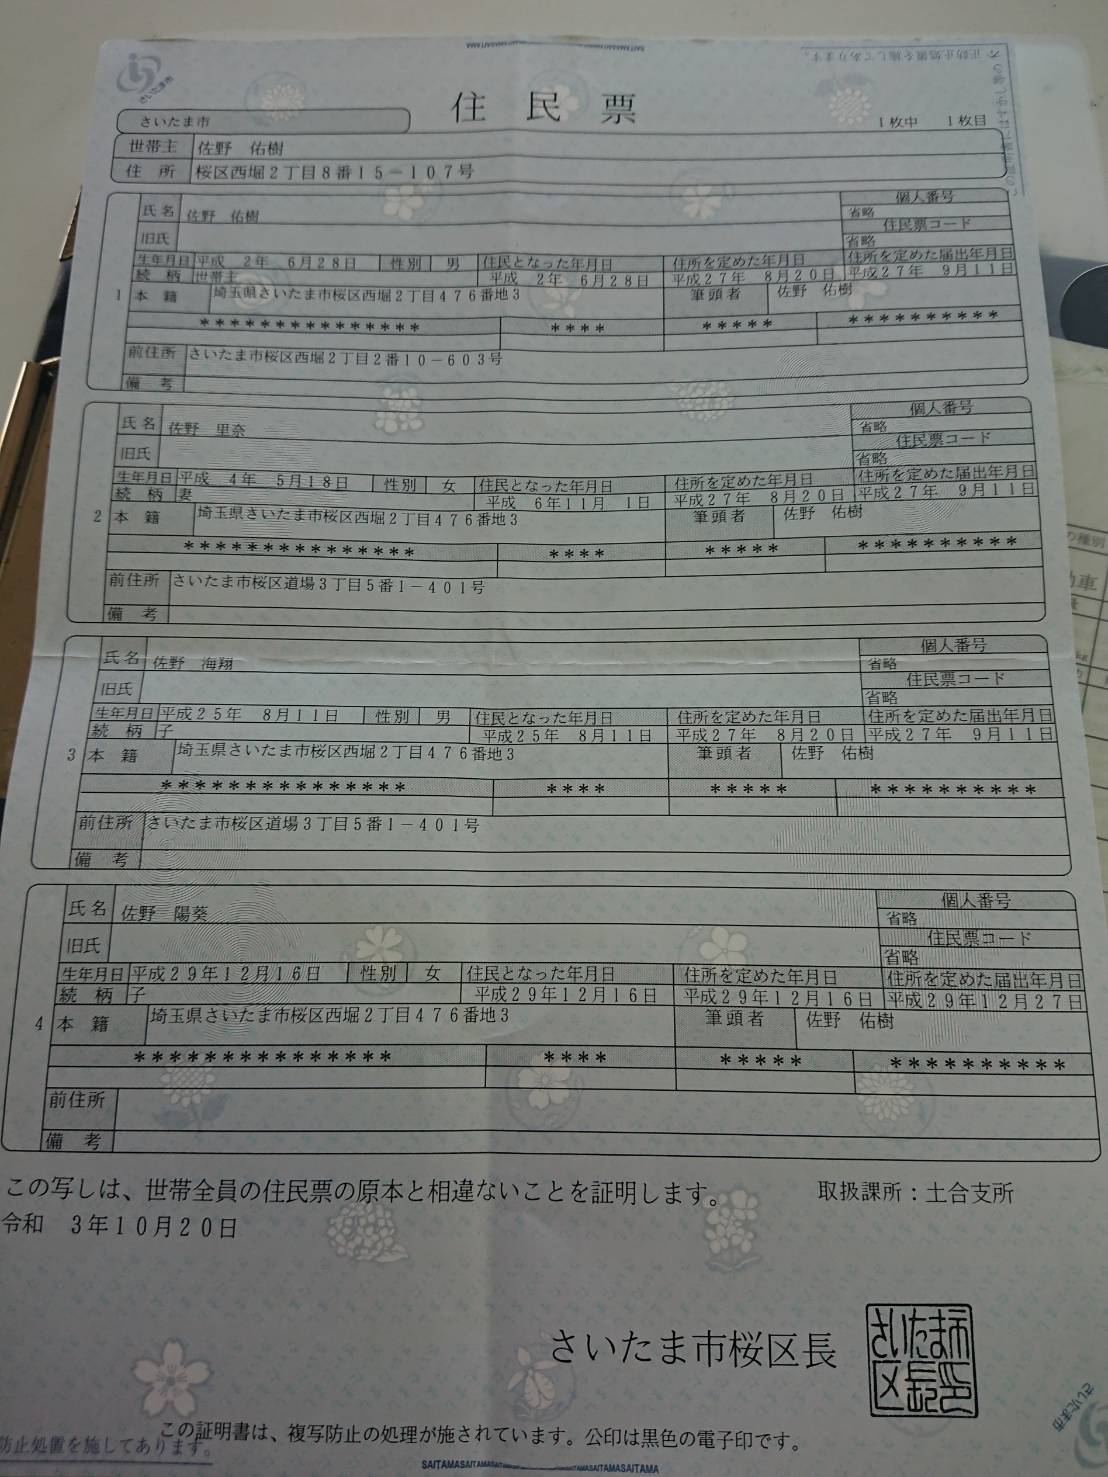 SAITAMASAITAMASAITAMA
さいたま市
住民票
さいたま市
1枚中 1枚目
世帯主 佐野 佑樹
住所 桜区西堀2丁目8番15-107号
1
氏名 佐野 佑樹
個人番号
省略
旧氏
住民票コード
省略
生年月日 平成 2年 6月28日 性別 男 住民となった年月日 住所を定めた年月日 住所を定めた届出年月日
続柄 世帯主 平成 2年 6月28日 平成27年 8月20日 平成27年 9月11日
本籍 埼玉県さいたま市桜区西堀2丁目476番地3 筆頭者 佐野 佑樹
*************** **** ***** **********
前住所 さいたま市桜区西堀2丁目2番10-603号
備考
2
氏名 佐野 里奈
個人番号
省略
旧氏
住民票コード
省略
生年月日 平成 4年 5月18日 性別 女 住民となった年月日 住所を定めた年月日 住所を定めた届出年月日
続柄 妻 平成 6年11月 1日 平成27年 8月20日 平成27年 9月11日
本籍 埼玉県さいたま市桜区西堀2丁目476番地3 筆頭者 佐野 佑樹
*************** **** ***** **********
前住所 さいたま市桜区道場3丁目5番1-401号
備考
3
氏名 佐野 海翔
個人番号
省略
旧氏
住民票コード
省略
生年月日 平成25年 8月11日 性別 男 住民となった年月日 住所を定めた年月日 住所を定めた届出年月日
続柄 子 平成25年 8月11日 平成27年 8月20日 平成27年 9月11日
本籍 埼玉県さいたま市桜区西堀2丁目476番地3 筆頭者 佐野 佑樹
*************** **** ***** **********
前住所 さいたま市桜区道場3丁目5番1-401号
備考
4
氏名 佐野 陽葵
個人番号
省略
旧氏
住民票コード
省略
生年月日 平成29年12月16日 性別 女 住民となった年月日 住所を定めた年月日 住所を定めた届出年月日
続柄 子 平成29年12月16日 平成29年12月16日 平成29年12月27日
本籍 埼玉県さいたま市桜区西堀2丁目476番地3 筆頭者 佐野 佑樹
*************** **** ***** **********
前住所
備考
この写しは、世帯全員の住民票の原本と相違ないことを証明します。 取扱課所:土合支所
令和 3年10月20日
さいたま市桜区長
さいたま市桜区長之印
この証明書は、複写防止の処理が施されています。公印は黒色の電子印です。
防止処置を施してあります。
さいたま市
SAITAMASAITAMASAITAMASAITAMASAITAMASAITAMA
の種別
動車